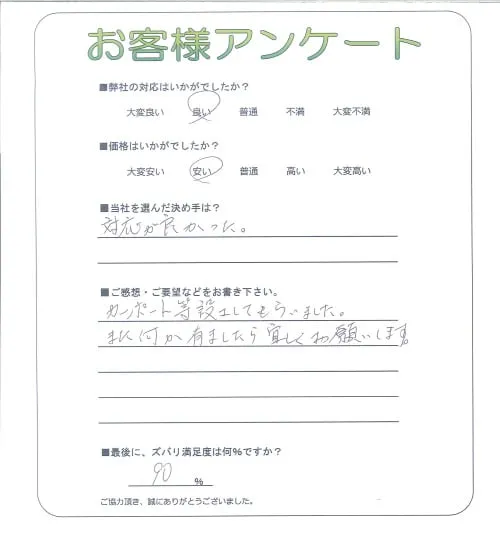 お客様アンケート
■弊社の対応はいかがでしたか?
大変良い 良い 普通 不満 大変不満
■価格はいかがでしたか?
大変安い 安い 普通 高い 大変高い
■当社を選んだ決め手は?
対応が良かった。
■ご感想・ご要望などをお書き下さい。
カーポート等設工してもらいました。
また何か有ましたら宜しくお願いします
■最後に、ズバリ満足度は何%ですか?
90 %
ご協力頂き、誠にありがとうございました。